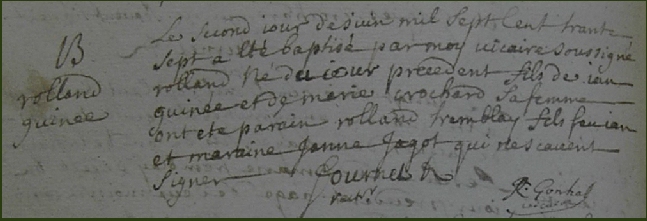 B
rolland
guinée
Le second jour de juin mil sept cent trante
sept a été baptisé par moy vicaire soussigné
rolland né du jour precedent fils de jan
guinée et de merie crochard sa femme
ont eté parain rolland tremblay fils feu jan
et maraine Janne Jagot qui ne scavent
signer